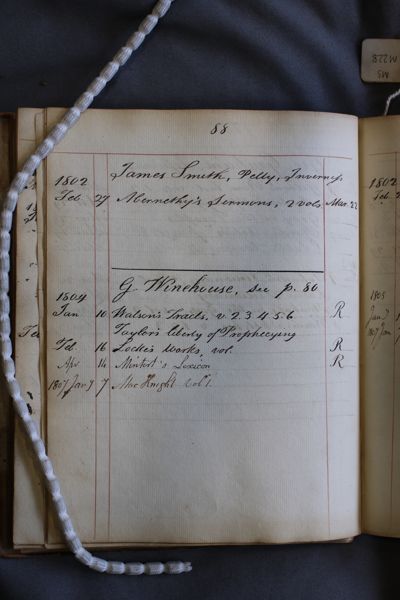 88
James Smith, Pelly, Inverness
1802
Feb. 27 Abernethy's Sermons, 2 vols Mar. 22
G. Winehouse, see p. 80
1804
Jan 10 Watson's Tracts, v. 2 3 4 5 6 R
Taylor's liberty of Prophecying
Feb. 16 Locke's Works, vol. R
Apr 14 Mintert's Lexicon R
1807 Jany 7 Mac Knight Vol 1.
MS
M228
1802
Feb.
1805
Jany
1807 Jan